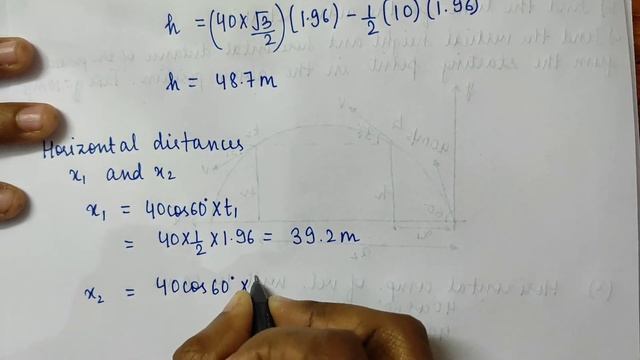 h = (40 × √3/2) (1.96) − 1/2 (10) (1.96)
h = 48.7 m
Horizontal distances
x₁ and x₂
x₁ = 40cos60° × t₁
= 40 × 1/2 × 1.96 = 39.2 m
x₂ = 40cos60° ×